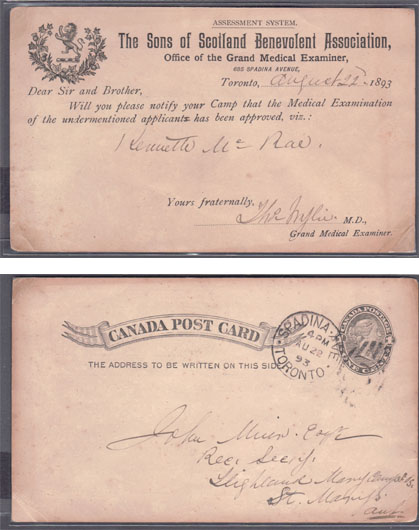 ASSESSMENT SYSTEM.
The Sons of Scotland Benevolent Association,
Office of the Grand Medical Examiner,
SPADINA AVENUE,
Toronto, August 22 1893
Dear Sir and Brother,
Will you please notify your Camp that the Medical Examination
of the undermentioned applicants has been approved, viz.:
Kenneth McRae.
Yours fraternally,
Wylie M.D.,
Grand Medical Examiner.
CANADA POST CARD
THE ADDRESS TO BE WRITTEN ON THIS SIDE
SPADINA AVE
PM
AU 22
93
TORONTO
CANADA POSTAGE
ONE CENT
John
Rec. Secy.
Highland
St. Marys
Ont